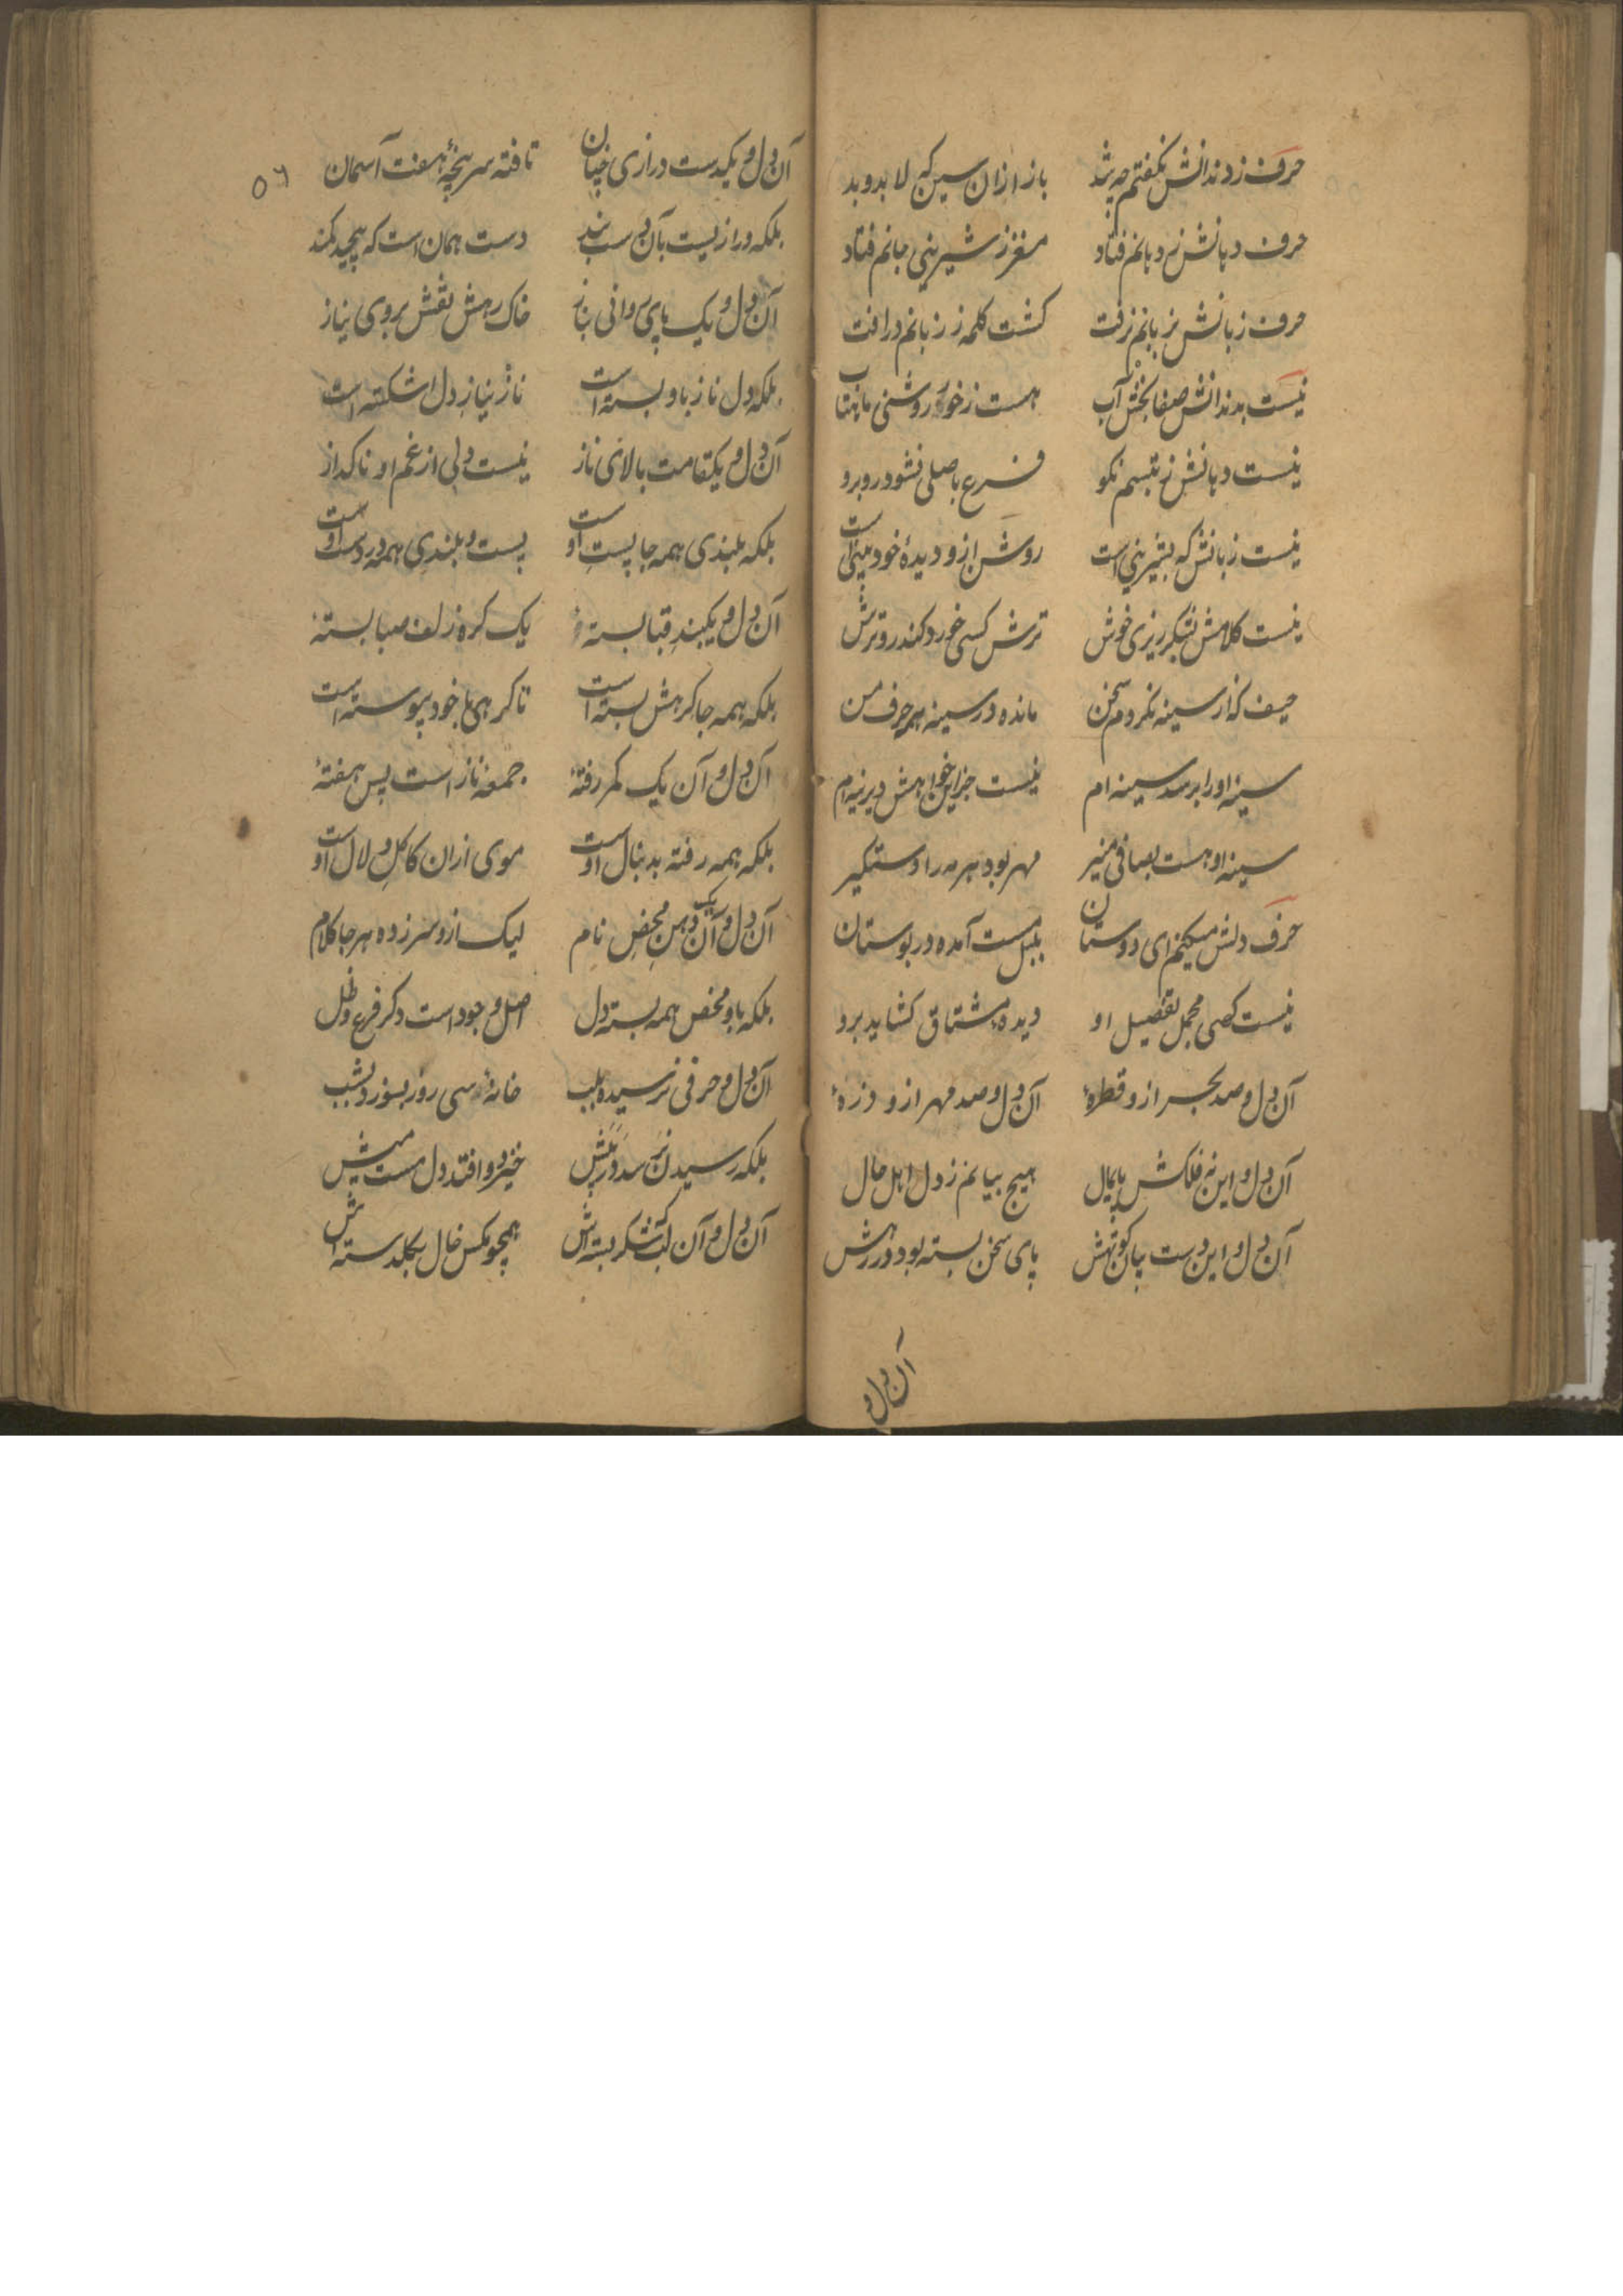 حرف ز دندانش نکفتم چه شد باز ازان سین که لا بدو بد
حرف دهانش ز دهانم فتاد مغز ز شیرینی جانم فتاد
حرف زبانش ز زبانم نرفت کشت کلمه ز زبانم در
نیست بدندانش صفا بخش آب هست ز خود روشنی ماهتاب
نیست دهانش ز تبسم نکو فرع باصلی نشود روبرو
نیست زبانش که بشیرینی است روشن ازو دیدهٔ خودبینی است
نیست کلامش بشکر ریزی خوش ترش کسی خورد کند رو ترش
حیف که از سینه نکردم سخن مانده در سینه همه حرف من
سینه او را برسد سینه ام نیست جز این خواهش دیرینه ام
سینه او هست بصافی منیر مهر بود هر مه را دستکیر
حرف دلش میکنم ای دوستان بلبل مست آمده در بوستان
نیست کسی مجمل تفصیل او دیده مشتاق کشاید برو
آن دل و صد بحر ازو قطرهٔ آن دل و صد مهر ازو ذرهٔ
آن دل و این نه فلکش پایمال هیچ بیانم ز دل اهل حال
آن دل و این دست بیان کوتهش پای سخن بسته بود در رهش
آن دل و
٥٦
آن دل و یکدست درازی چنان تافته سر پنجهٔ هفت آسمان
بلکه درازیست بآن دست بند دست همان است که پیچید کمند
آن دل و یک پای روانی بناز خاک رهش نقش بروی نیاز
بلکه دل ناز باو بسته است ناز نیاز دل اشکسته است
آن دل و یکقامت بالای ناز نیست دلی از غم او ناکداز
بلکه بلندی همه جا پست او است پست و بلندی همه در دست او است
آن دل و یکبند قبا بستهٔ یک کره زلف صبا بستهٔ
بلکه همه جا کرهش بسته است تا کرهی با خود پیوسته است
آن دل و آن یک کمر رفتهٔ جمعهٔ ناز است پس هفتهٔ
بلکه همه رفته بدنبال او است موی ازان کاکل و لال او است
آن دل و آن یک دهن محض نام لیک ازو سر زده هر جا کلام
بلکه باو محض همه بسته دل اصل وجود است دکر فرع و ظل
آن دل و حرفی نرسیده بلب خانهٔ سی روز بسوزد بشب
بلکه رسیدن نرسد در پیش خیزد و افتد دل مست
آن دل و آن لب که شکر بسته اش همچو مکس خال بکلدسته اش